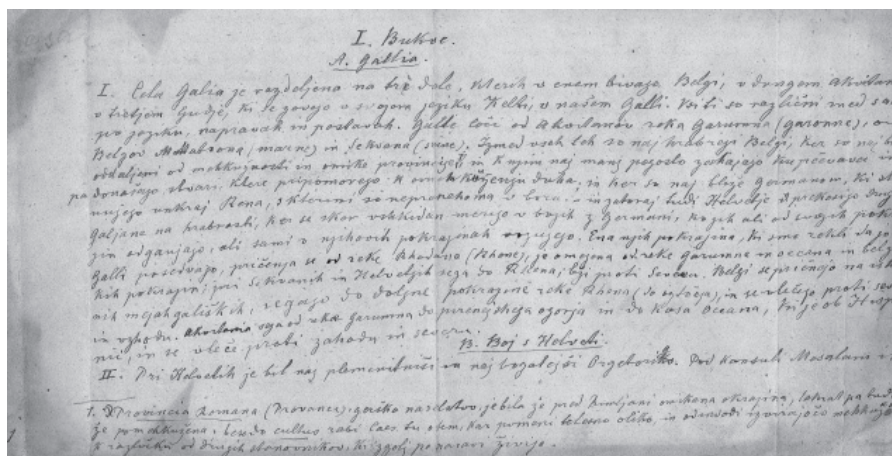 I. Bukve.
A. Gallia.
I. Cela Galia je razdeljena na tri dele, kterih v enem bivajo Belgi, v drugem Akvitan
v tretjem ljudje, ki se zovejo v svojem jeziku Kelti, v našem Galli. Vsi ti so različni med sa
po jeziku, napravah in postavah. Galle loči od Akvitanov reka Garumna (garonne), o
Belgov Matrona (marne) in Sekvana (seine). Izmed vseh teh so naj hrabreji Belgi, ker so naj
odaljeni od mehkužnosti in omike provincije in k njim naj manj pogosto zahajajo kupčevavci in
pa donašajo stvari, ktere pripomorejo k omehkuženju duha, in ker so naj bliže Germanom, ki st
unkraj Rena, s kterimi so neprenehoma v
Galjane na hrabrosti, ker se skor vsakidan merijo v bojih z Germani, kojih ali od svojih pok
odganjajo, ali sami v njihovih pokrajnah vojujejo. Ena njih pokrajina, ki smo rekli da jo
Galli posedvajo, pričenja se od reke Rhodana (Rhone), je omejena od reke Garumne in oceana in bel
kih pokrajn; pri Sekvanih in Helvetijih sega do Rhena; proti Severu. Belgi se pričnejo na
mejah galiških, segajo do doljne pokrajine reke Rhena in se vlečejo proti sev
in vzhodu. Akvitania sega od reke Garumna do pirenejskega ogorja in do kosa Oceana, ki je ob Hisp
nii, in se vleče proti zahodu in severu.
B. Boj s Helveti.
II. Pri Helvetih je bil naj plemenitniši in naj bogatejši Orgetoriks. Pod konsuli Mesalam
1. Provincia Romana (Provence), gerško naselstvo, je bila že pred Rimljani omikana okrajina, takrat pa
že pomehkužena. besedo cultus rabi Caes. tu otem, kar pomeni telesno oliko, in
k razločku od drugih stanovnikov, ki zgolj po naravi živijo.